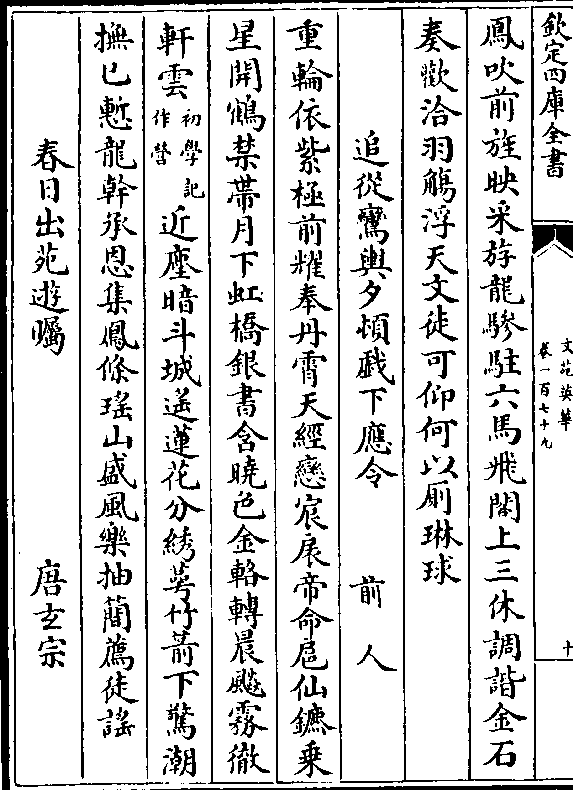 欽定四庫全書
文苑英華
卷一百七十九
十
鳳吹前旌映采斿龍驂駐六馬飛閣上三休調諧金石
奏歡洽羽觴浮天文徒可仰何以廁琳球
追從鑾輿夕頓戲下應令 前人
重輪依紫極前耀奉丹霄天經戀宸扆帝命扈仙鑣乗
星開鶴禁帶月下虹橋銀書含曉色金輅轉晨飇霧徹
軒雲初學記作營近塵暗斗城遥蓮花分綉萼竹箭下驚潮
撫已慙龍幹承恩集鳳條瑶山盛風樂抽簡薦徒謡
春日出苑遊矚 唐玄宗